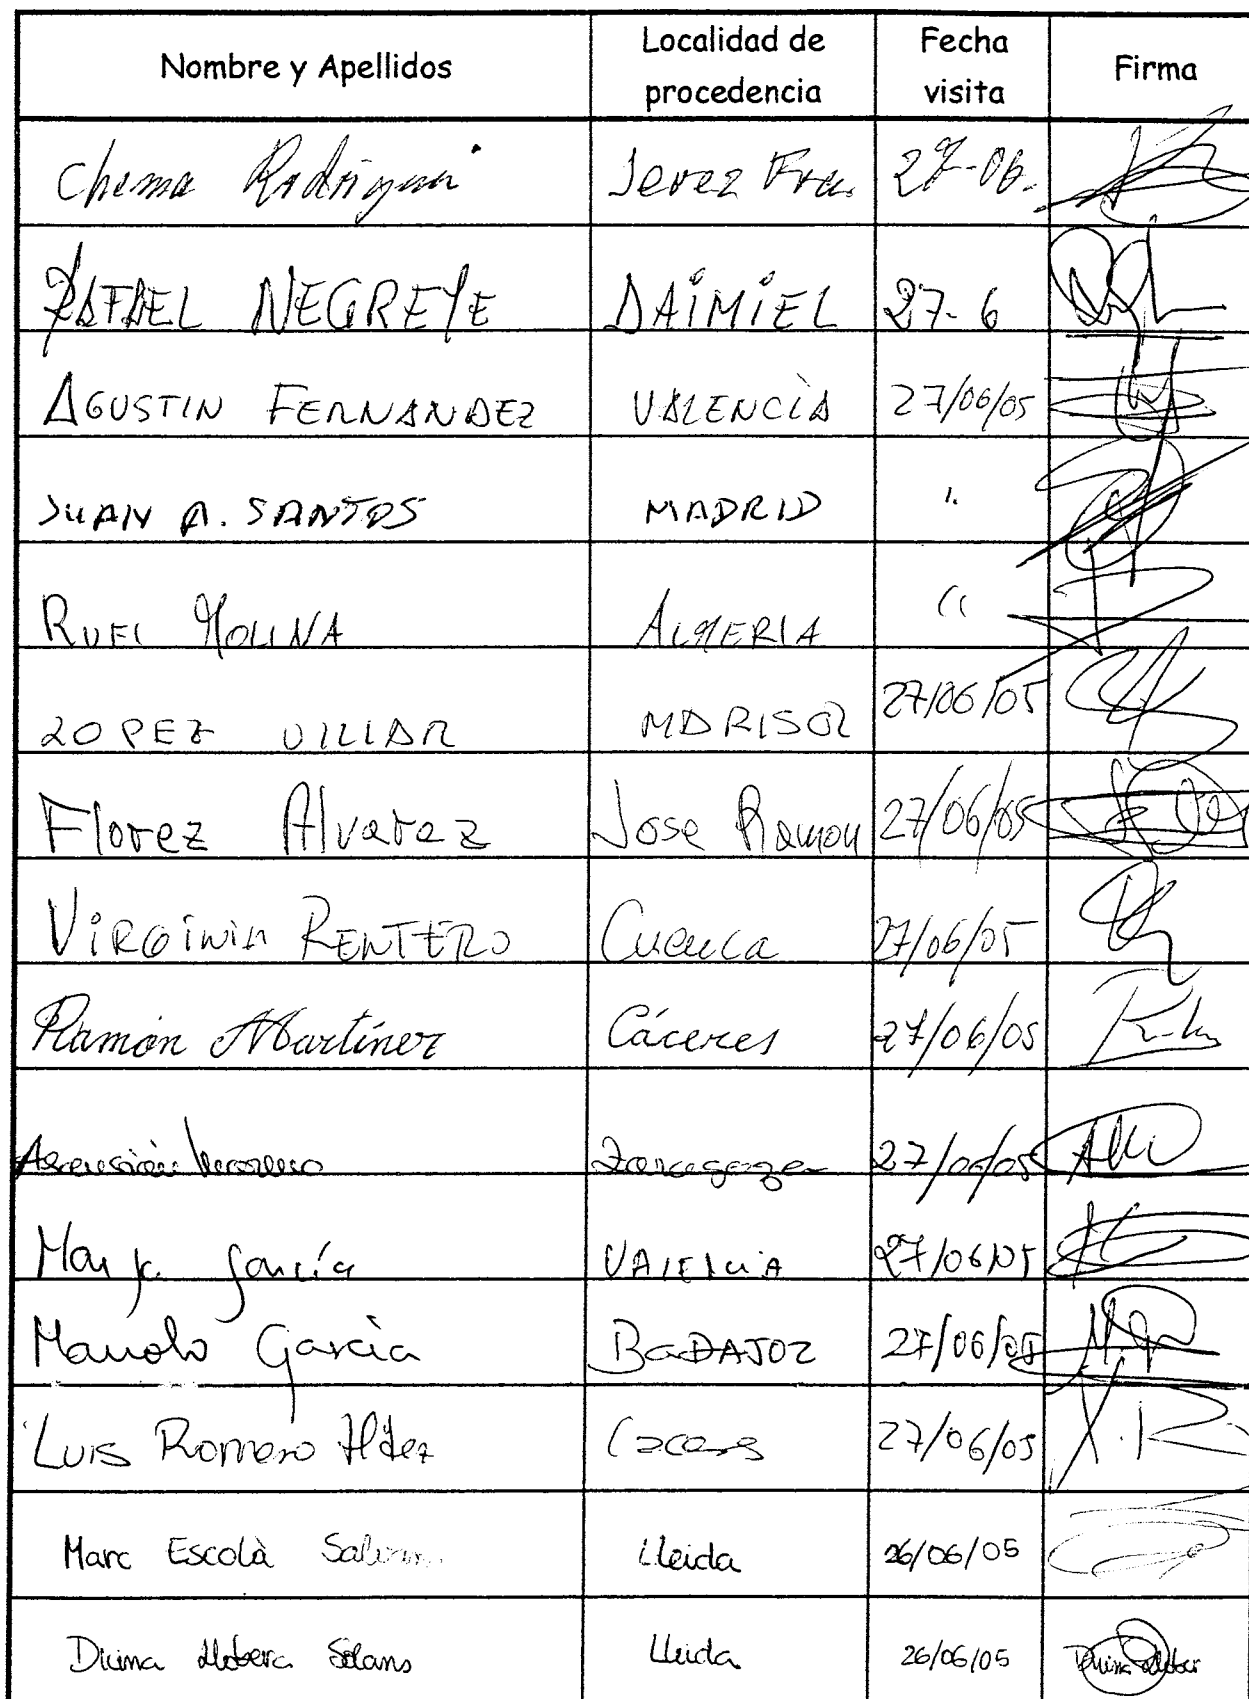 Nombre y Apellidos Localidad de procedencia Fecha visita Firma
Chema Rodriguez Jerez Fra. 27-06.
RAFAEL NEGRETE DAIMIEL 27-6
AGUSTIN FERNANDEZ VALENCIA 27/06/05
JUAN A. SANTOS MADRID "
MOLINA ALMERIA "
LOPEZ VILLAR MARISOL 27/06/05
Florez Alvarez Jose Ramon 27/06/05
VIRGINIA RENTERO Cuenca 27/06/05
Ramón Martínez Cáceres 27/06/05
Ascensión Moreno Zaragoza 27/06/05
García VALENCIA 27/06/05
Manolo García BADAJOZ 27/06/05
Luis Romero Hdez Caceres 27/06/05
Marc Escolà Lleida 26/06/05
Divina Llobera Solans Lleida 26/06/05